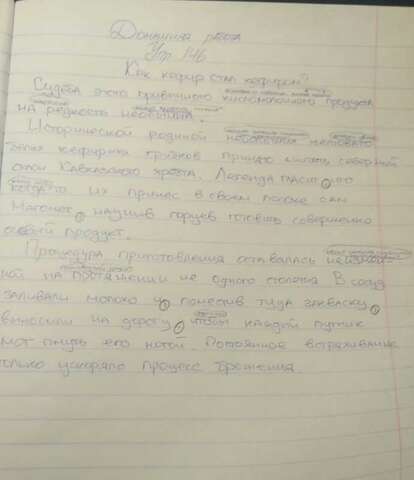 Домашняя работа
Упр 146
Как кефир стал кефиром?
Судьба этого привычного кисломолочного продукта
на редкость необычна.
Исторической родиной
белых кефирных грибков принято считать северный
склон Кавказского хребта. Легенда гласит, что
когда-то их принес в своем посохе сам
Магомет, научив горцев готовить совершенно
особый продукт.
Процедура приготовления оставалась
ной на протяжении не одного столетия. В сосуд
заливали молоко и, поместив туда закваску,
выносили на дорогу, чтобы каждый путник
мог пнуть его ногой. Постоянное встряхивание
только ускоряло процесс брожения.